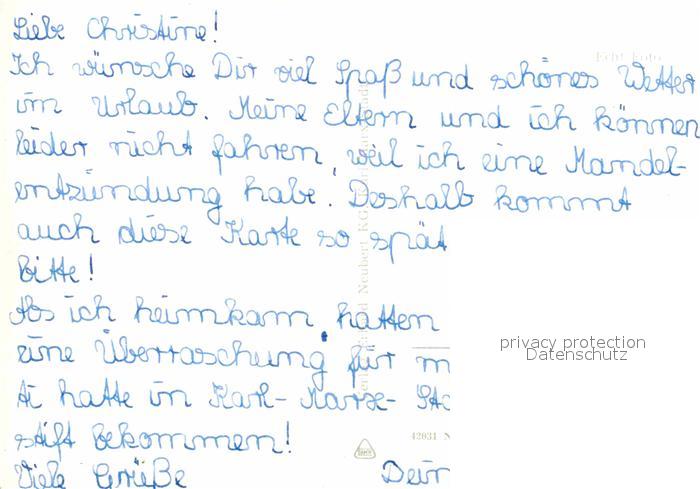 Liebe Christine!
Echt Foto
Ich wünsche Dir viel Spaß und schönes Wetter
im Urlaub. Meine Eltern und ich können
leider nicht fahren, weil ich eine Mandel-
entzündung habe. Deshalb kommt
auch diese Karte so spät
Bitte!
Als ich heimkam hatten
eine Überraschung für m
privacy protection
Datenschutz
ti hatte in Karl-Marx-Sta
stift bekommen!
42031 N
Viele Grüße Dein